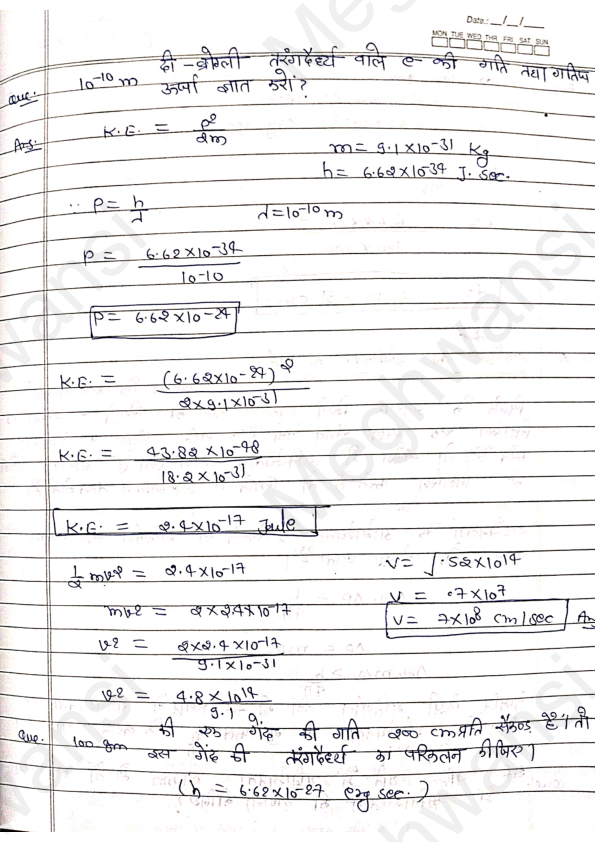 Date.: __/__/__
MON TUE WED THR FRI SAT SUN
Que:- 10-10 m दी-ब्रोग्ली तरंगदैर्ध्य वाले e- की गति तथा गतिज
ऊर्जा ज्ञात करो?
Ans:- K.E. = p2/2m
m = 9.1×10-31 Kg
h = 6.62×10-34 J. sec.
∵ P = h/λ λ=10-10 m
P = 6.62×10-34
10-10
P = 6.62×10-24
K.E. = (6.62×10-24)2
2×9.1×10-31
K.E. = 43.82×10-48
18.2×10-31
K.E. = 2.4×10-17 Joule
1/2 mv2 = 2.4×10-17
mv2 = 2×2.4×10-17
v2 = 2×2.4×10-17
9.1×10-31
v2 = 4.8×1014
9.1
V = √.52×1014
V = .7×107
V = 7×108 cm/sec Ans
Que. 100 gm की एक गेंद की गति 200 cm प्रति सैकण्ड है। तो
इस गेंद की तरंगदैर्ध्य का परिकलन कीजिए।
(h = 6.62×10-27 erg sec.)
Meghwansi